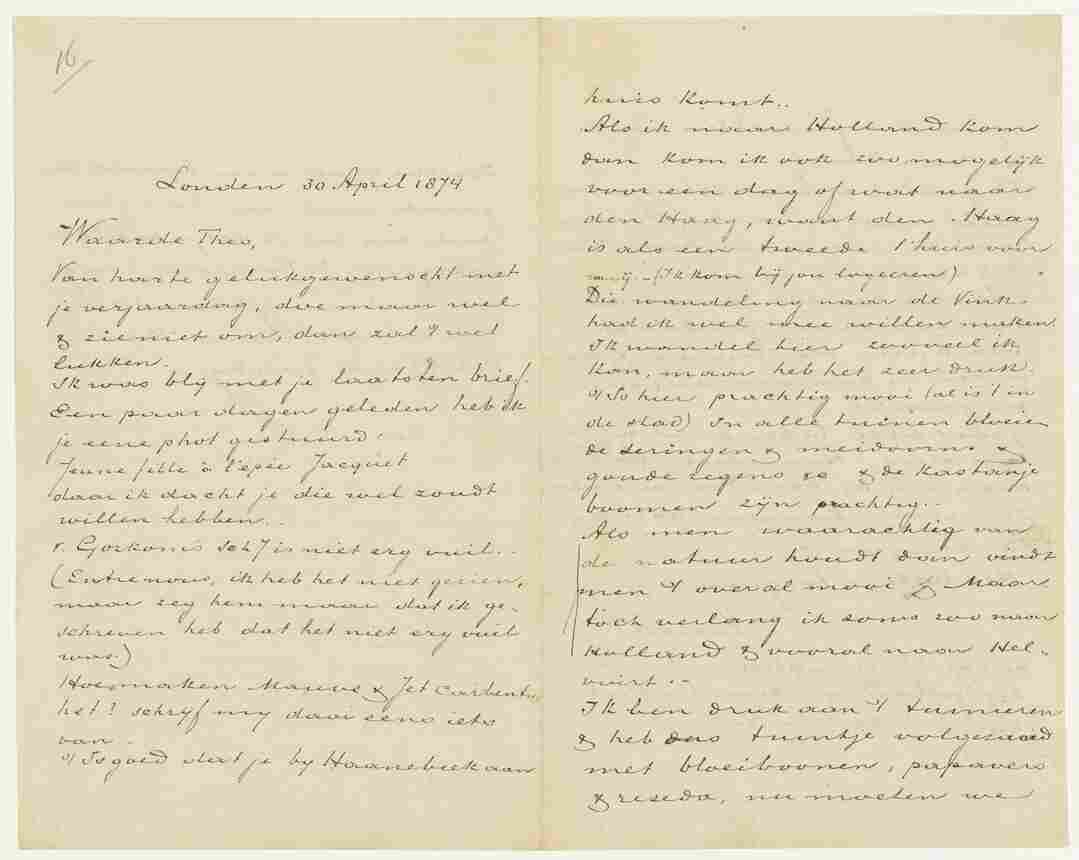 16
Londen 30 April 1874
Waarde Theo,
Van harte gelukgewenscht met
je verjaardag, doe maar wel
& zie niet om, dan zal 't wel
lukken.
Ik was blij met je laatsten brief.
Een paar dagen geleden heb ik
je eene phot gestuurd:
Jeune fille à l'epée Jacquet
daar ik dacht je die wel zoudt
willen hebben..
v. Gorkom's schij is niet erg vuil..
(Entre nous, ik heb het niet gezien,
maar zeg hem maar dat ik ge-
schreven heb dat het niet erg vuil
was.)
Hoe maken Mauve & Jet Carbentus
het? schrijf mij daar eens iets
van.
't Is goed dat je by Haanebeek aan
huis komt..
Als ik naar Holland kom
dan kom ik ook zoo mogelijk
voor een dag of wat naar
den Haag, want den Haag
is als een tweede t'huis voor
mij.- (Ik kom bij jou logeeren)
Die wandeling naar de Vink
had ik wel mee willen maken.
Ik wandel hier zooveel ik
kan, maar heb het zeer druk.
't Is hier prachtig mooi (al is 't in
de stad) In alle tuinen bloeien
de seringen & meidoorns &
goude regens &c & de kastanje
boomen zijn prachtig..
Als men waarachtig van
de natuur houdt dan vindt
men 't overal mooi & Maar
toch verlang ik soms zoo naar
Holland & vooral naar Hel-
voirt.-
Ik ben druk aan 't tuinieren
& heb ons tuintje volgezaaid
met bloeiboonen, papavers
& reseda, nu moeten we